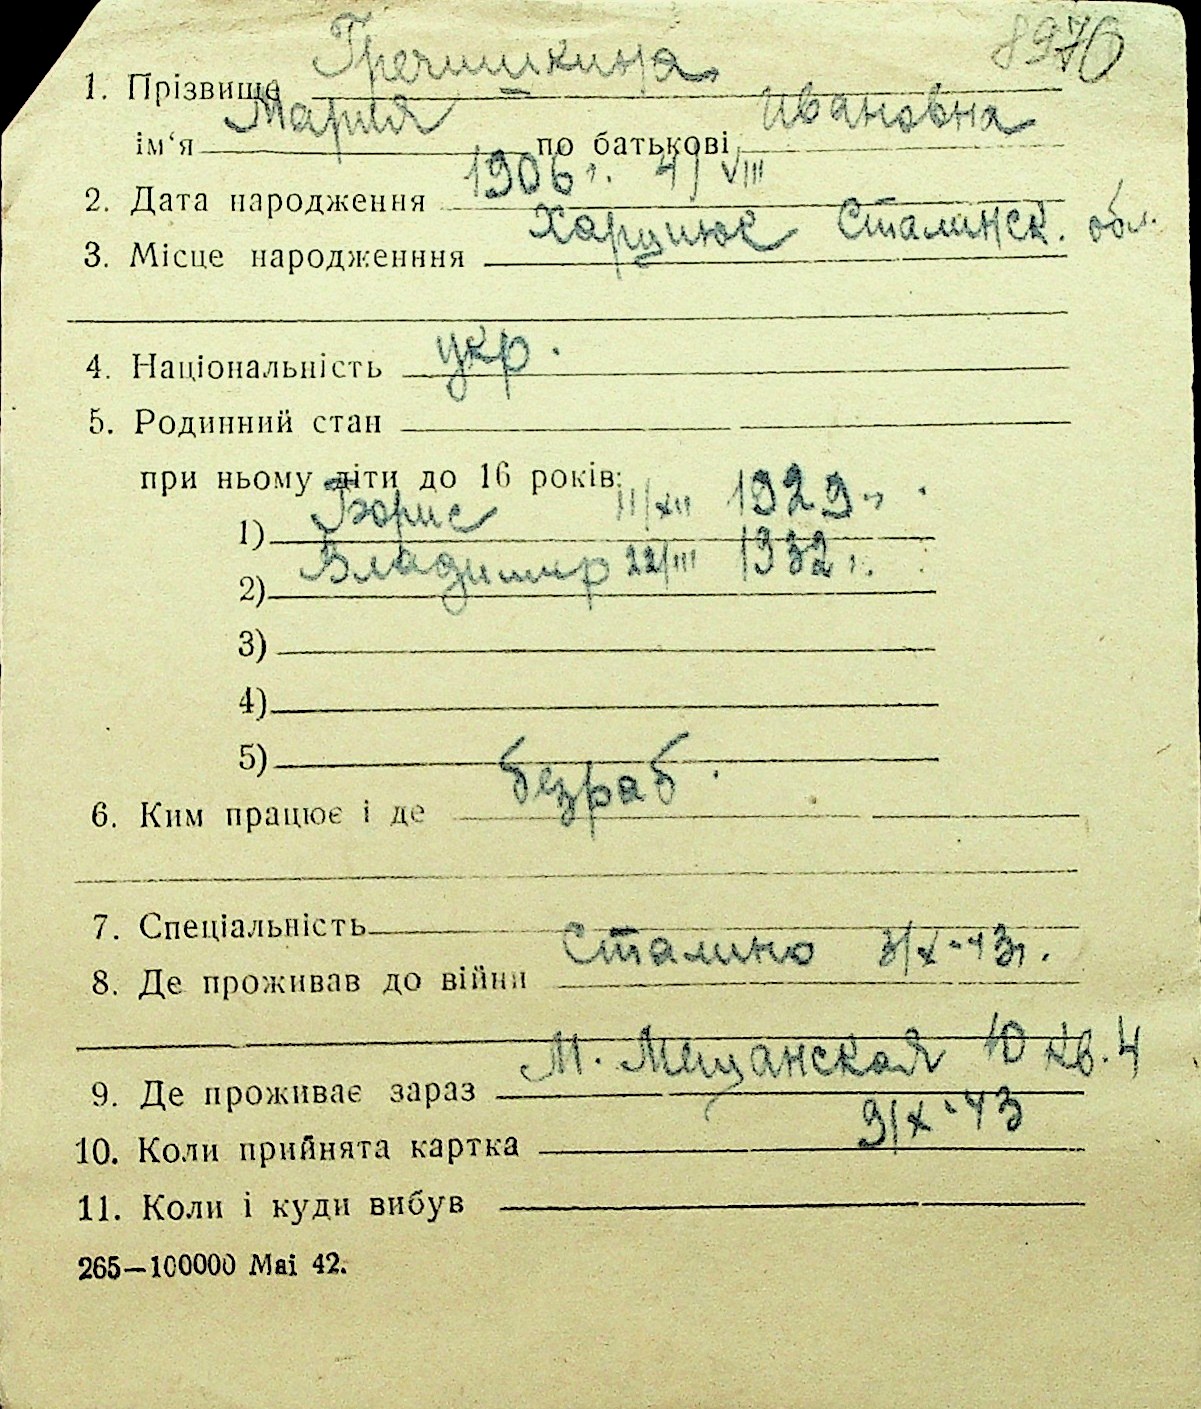 8970
1. Прізвище Гречишкина
ім‘я Мария по батькові Ивановна
2. Дата народження 1906 г. 4/VIII
3. Місце народженння Харцизск Сталинск. обл.
4. Національність укр.
5. Родинний стан
при ньому діти до 16 років:
1) Борис 11/XII 1929 г.
2) Владимир 22/III 1932 г.
3)
4)
5)
6. Ким працює і де безраб.
7. Спеціальність
8. Де проживав до війни Сталино 3/X-43г.
9. Де проживає зараз М. Мещанская 10 кв. 4
10. Коли прийнята картка 9/X-43
11. Коли і куди вибув
265—100000 Mai 42.